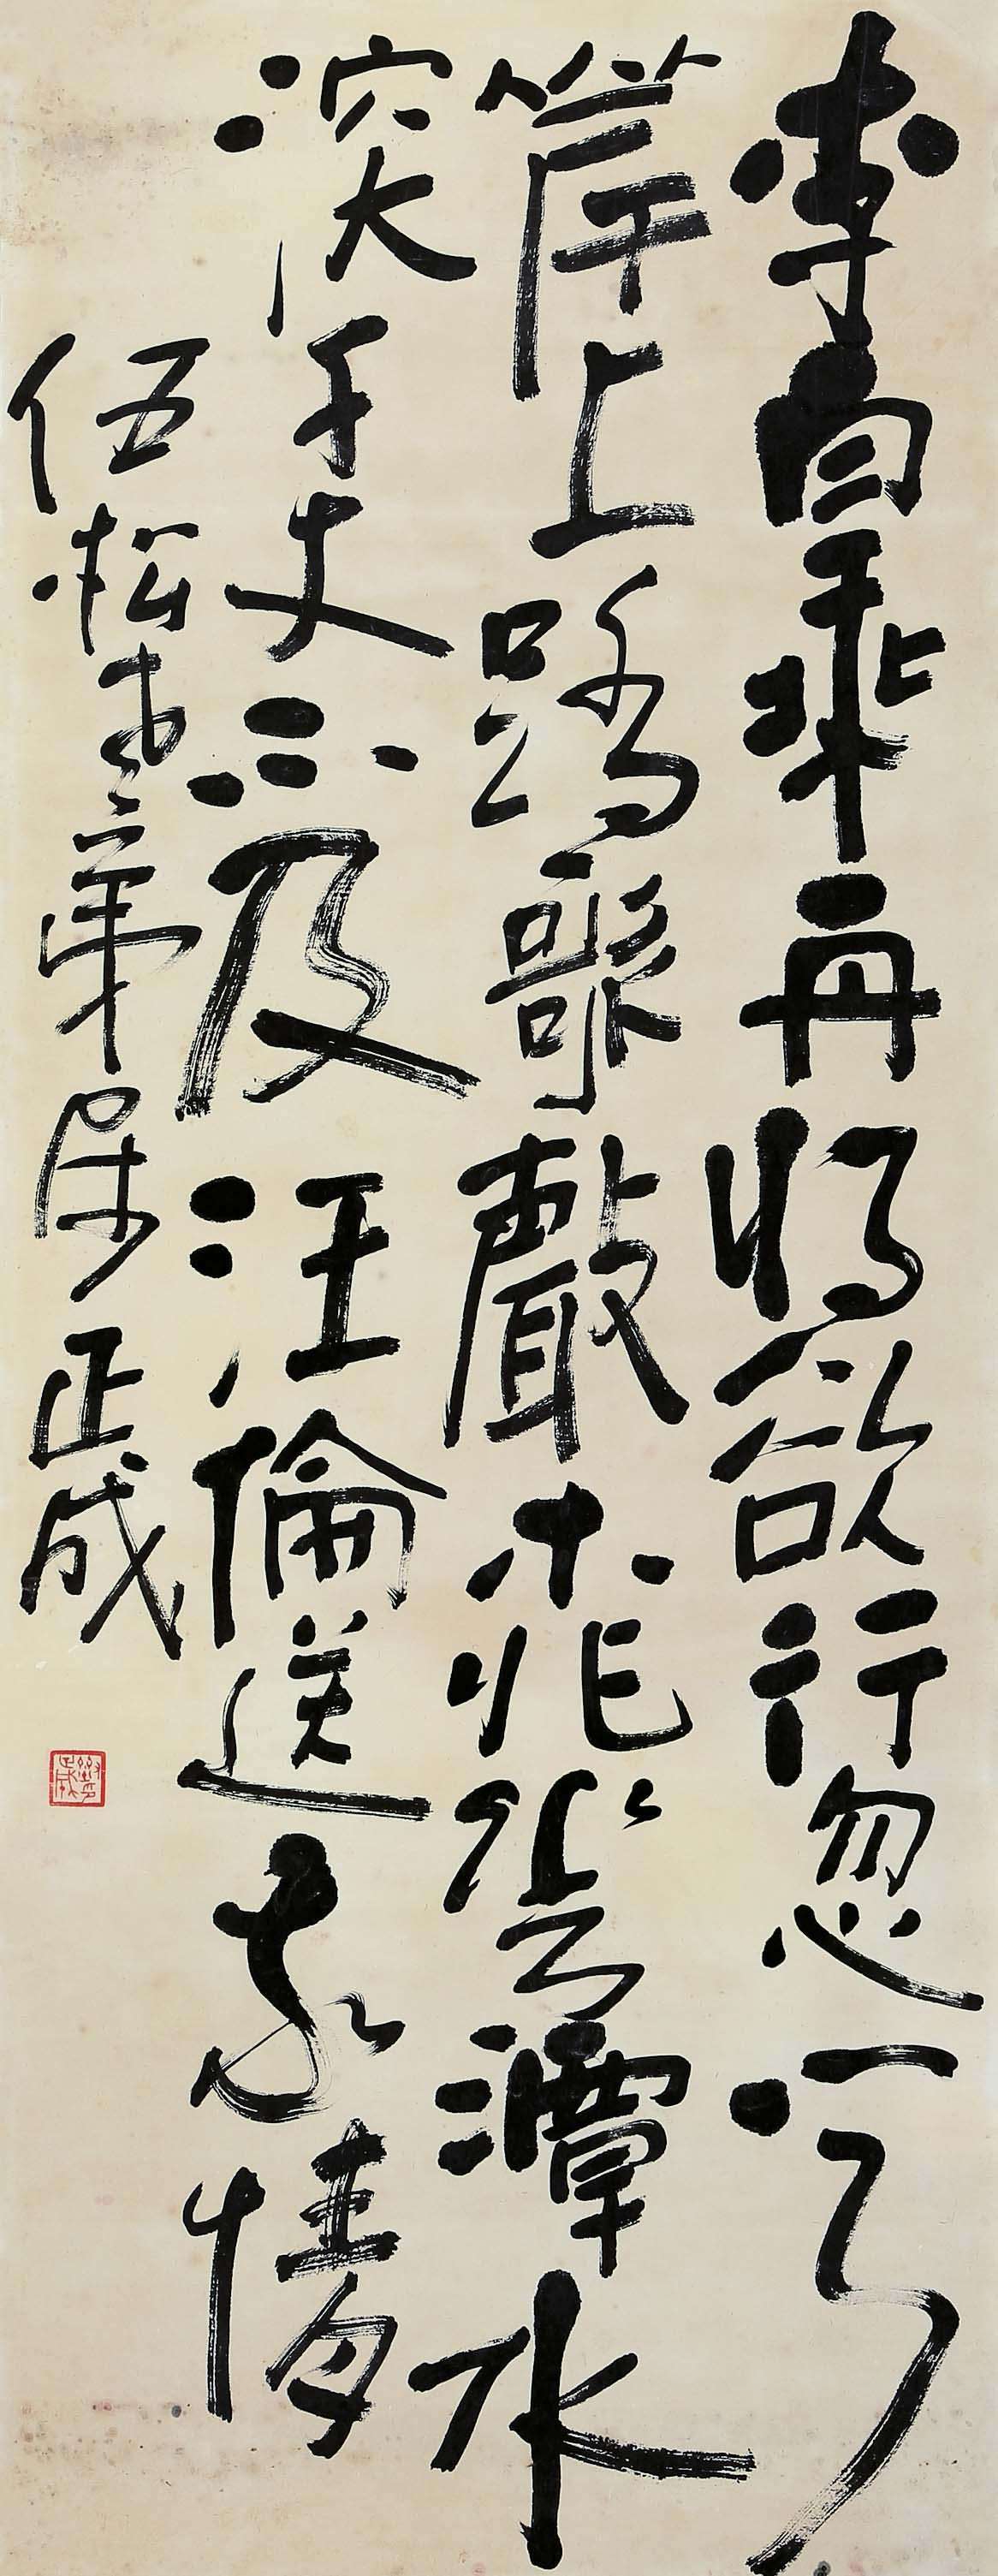 李白乘舟将欲行忽闻
岸上踏歌聲桃花潭水
深千丈不及汪倫送我情
伍松弟屬正成